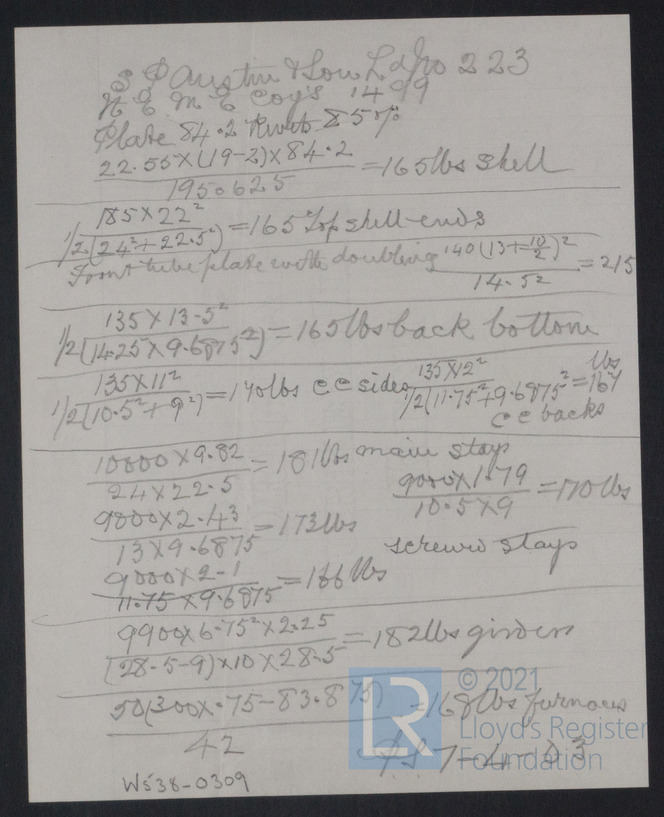 S P Austin & Son Ld No 223
N E M E Coy's 1499
Plate 84.2 Rivets 85%
22.55×(19-2)×84.2 / 195.0625 = 165lbs shell
185×22² / 1/2(24²+22.5²) = 165 Top shell ends
Front tube plate with doubling 140(13+10/2)² / 14.5² = 215
135×13.5² / 1/2(14.25×9.6875²) = 165lbs back bottom
135×11² / 1/2(10.5²+9²) = 170lbs cc sides 135×12² / 1/2(11.75²+9.6875² = 167 lbs
cc backs
10000×9.82 / 24×22.5 = 181lbs main stays
9000×1.79 / 10.5×9 = 170lbs
9000×2.43 / 13×9.6875 = 173lbs
screwed stays
9000×2.1 / 11.75×9.6875 = 166lbs
9900×6.75²×2.25 / (28.5-9)×10×28.5 = 182lbs girders
50(300×.75-83.875) / 42 = 168lbs furnaces
7-4-03
W538-0309
LR
© 2021
Lloyd's Register
Foundation